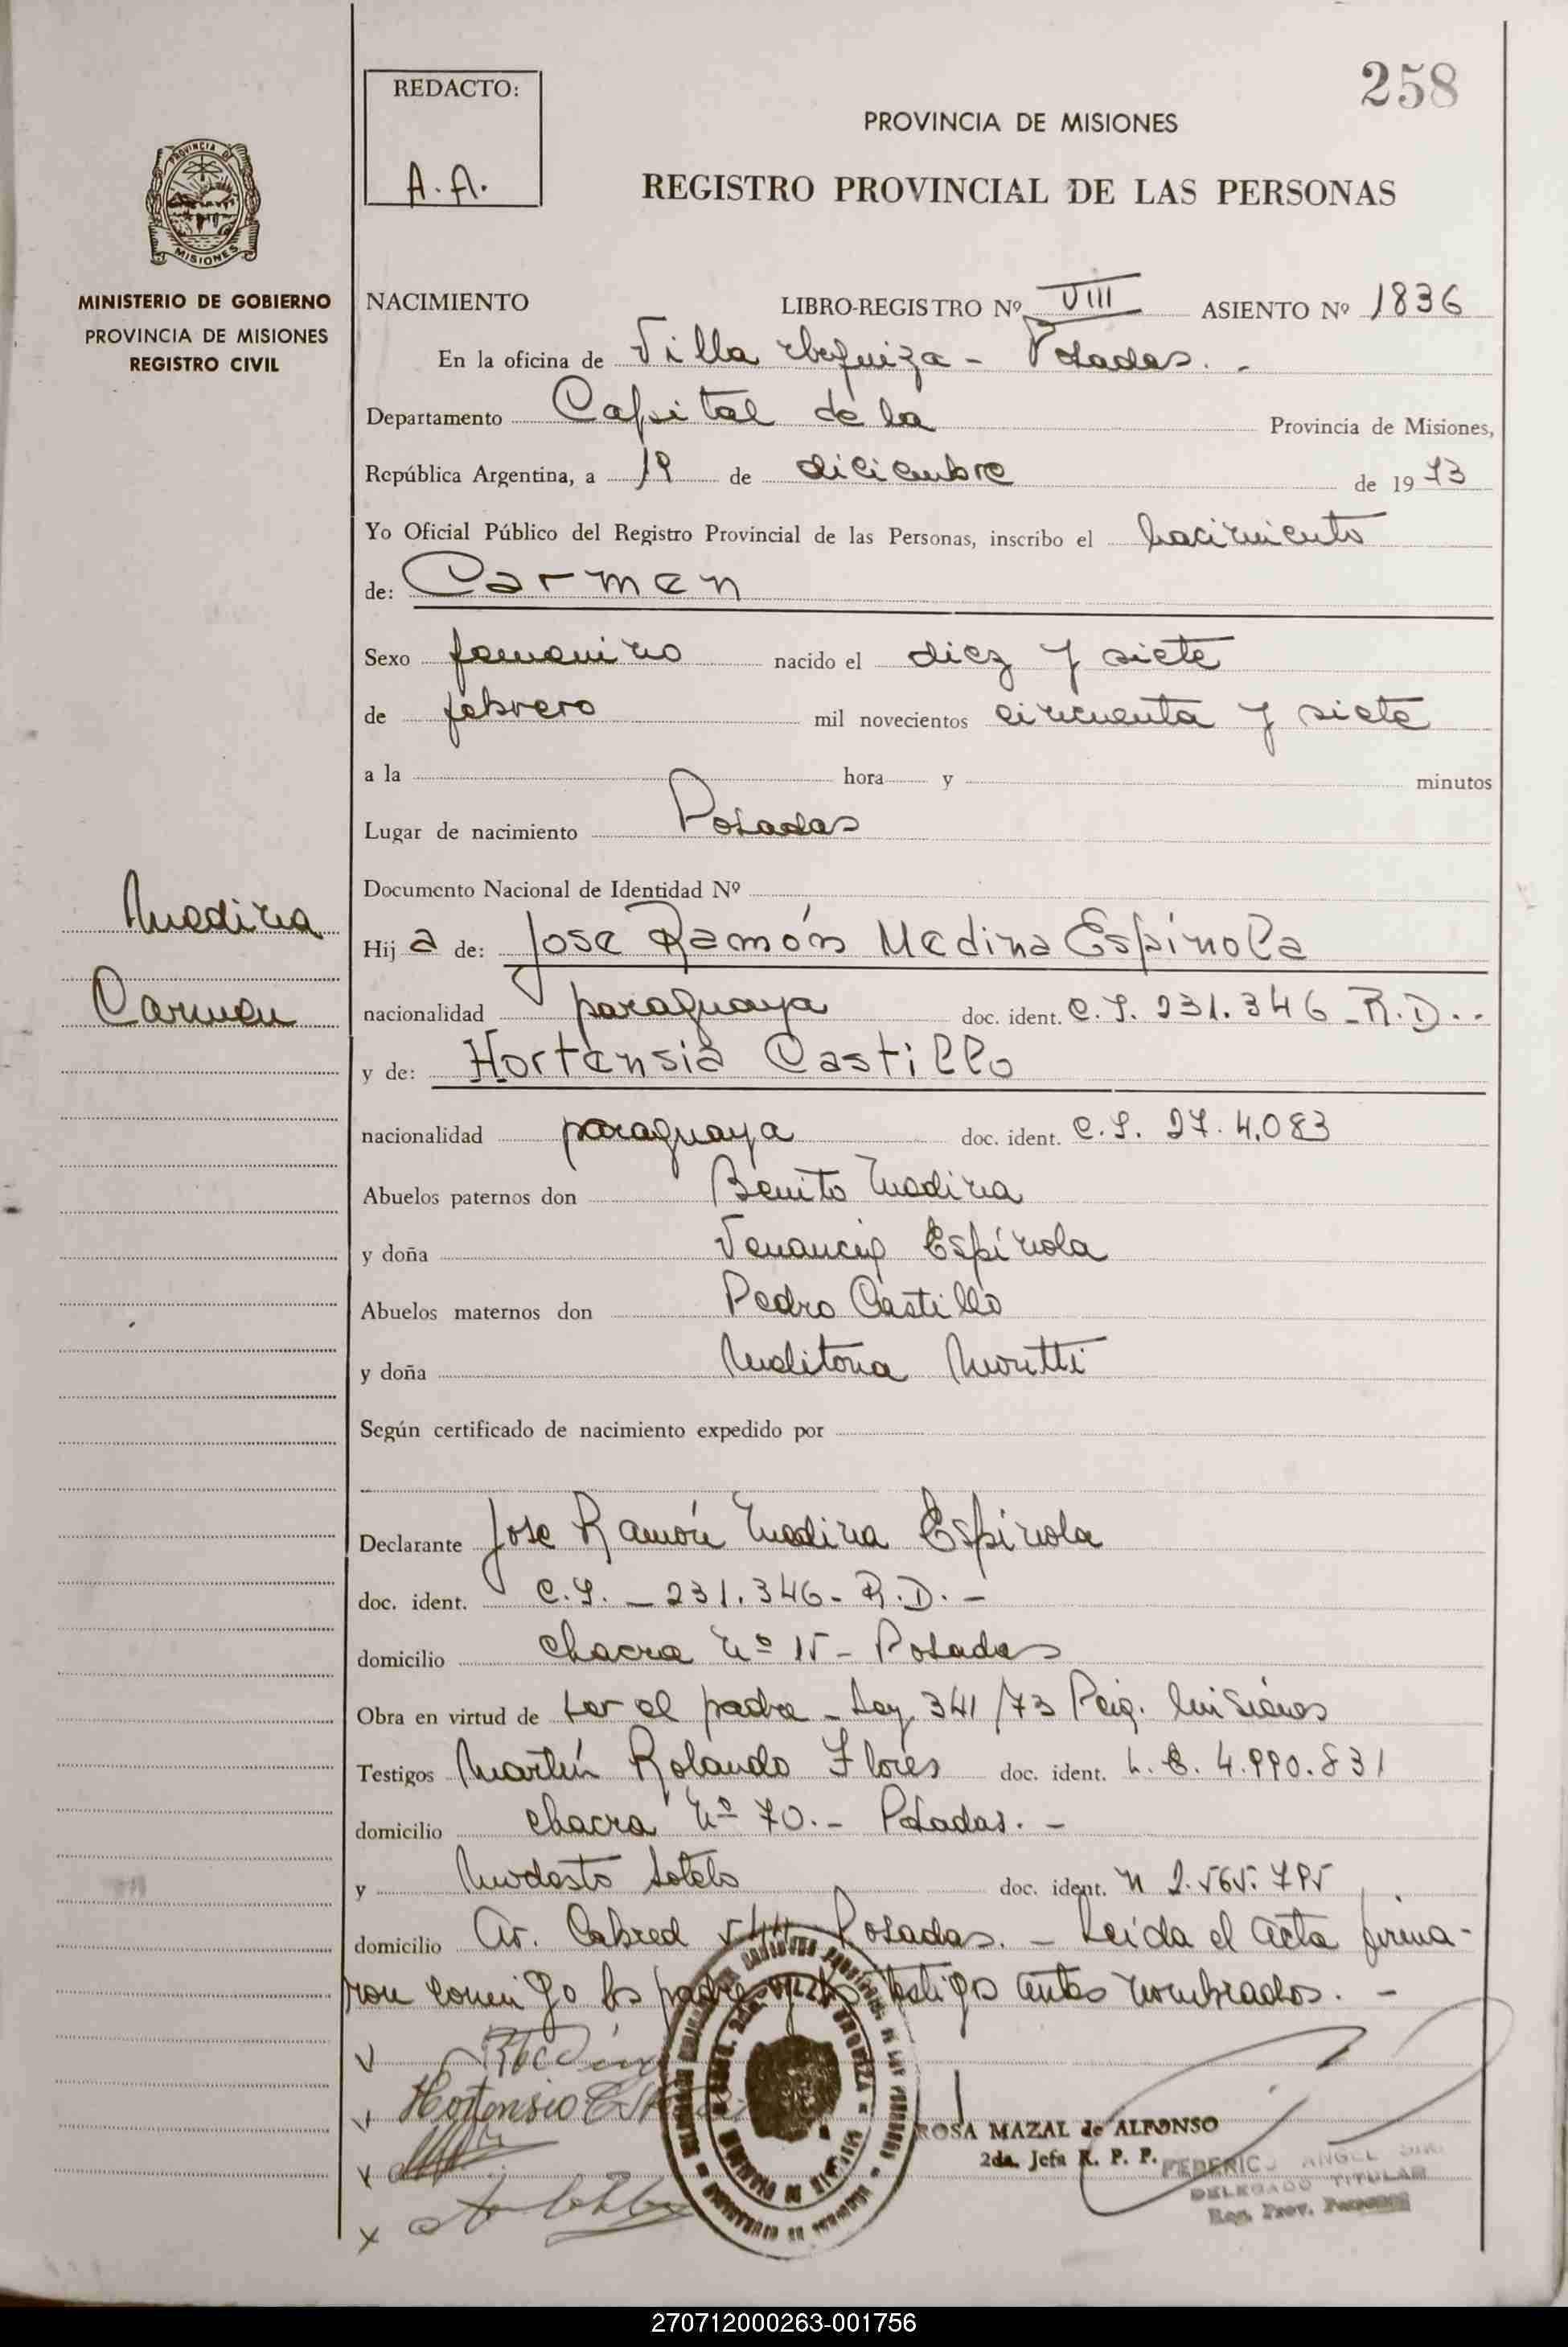 258
REDACTO:
A.A.
PROVINCIA DE MISIONES
REGISTRO PROVINCIAL DE LAS PERSONAS
PROVINCIA DE
MISIONES
MINISTERIO DE GOBIERNO
PROVINCIA DE MISIONES
REGISTRO CIVIL
NACIMIENTO LIBRO-REGISTRO Nº VIII ASIENTO Nº 1836
En la oficina de Villa Urquiza - Posadas. -
Departamento Capital de la Provincia de Misiones,
República Argentina, a 19 de diciembre de 1973
Yo Oficial Público del Registro Provincial de las Personas, inscribo el nacimiento
de: Carmen
Sexo femenino nacido el diez y siete
de febrero mil novecientos cincuenta y siete
a la hora y minutos
Lugar de nacimiento Posadas
Documento Nacional de Identidad Nº
Medina
Carmen
Hij a de: Jose Ramón Medina Espínola
nacionalidad paraguaya doc. ident. C.I. 231.346 - R.D. -
y de: Hortensia Castillo
nacionalidad paraguaya doc. ident. C.I. 27.4.083
Abuelos paternos don Benito Medina
y doña Venancia Espínola
Abuelos maternos don Pedro Castillo
y doña Melitona
Según certificado de nacimiento expedido por
Declarante Jose Ramón Medina Espínola
doc. ident. C.I. - 231.346 - R.D. -
domicilio chacra nº 15 - Posadas
Obra en virtud de ser el padre - Ley 341/73 Misiones
Testigos Martín Rolando Flores doc. ident. 4.990.831
domicilio chacra nº 70. - Posadas. -
y Modesto Sotelo doc. ident. 2.565.795
domicilio Av. Cabred 544 Posadas. - Leída el acta firma-
ron conmigo los padres y los testigos antes nombrados. -
Hortensia
ROSA MAZAL de ALFONSO
2da. Jefa R. P. P.
FEDERICO ANGEL
DELEGADO TITULAR
Reg. Prov. Personas
270712000263-001756